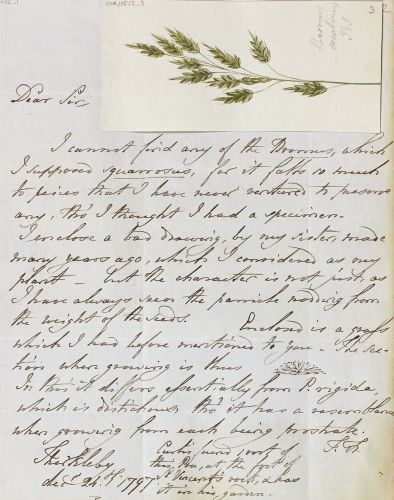 3
2
Bromus
secalinus
Dear Sir
I cannot find any of the Bromus, which
I supposed squarrosus, for it falls so much
to peices that I have never ventured to preserve
any, tho' I thought I had a specimen.
I enclose a bad drawing, by my sister, made
many years ago, which I considered as my
plant - but the character is not just, as
I have always seen the panicle nodding from
the weight of the seeds. Enclosed is a grass
which I had before mentioned to you - The sec-
tion when growing is thus
In this it differs essentially from P. rigida,
which is distichous, tho' it has a resemblance
when growing from each being prostrate.
Curtis found, sort of
this Poa, at the foot of
St Vincent's rock, & has
it in his garden.
Thirkleby
dec. 24th. 1797